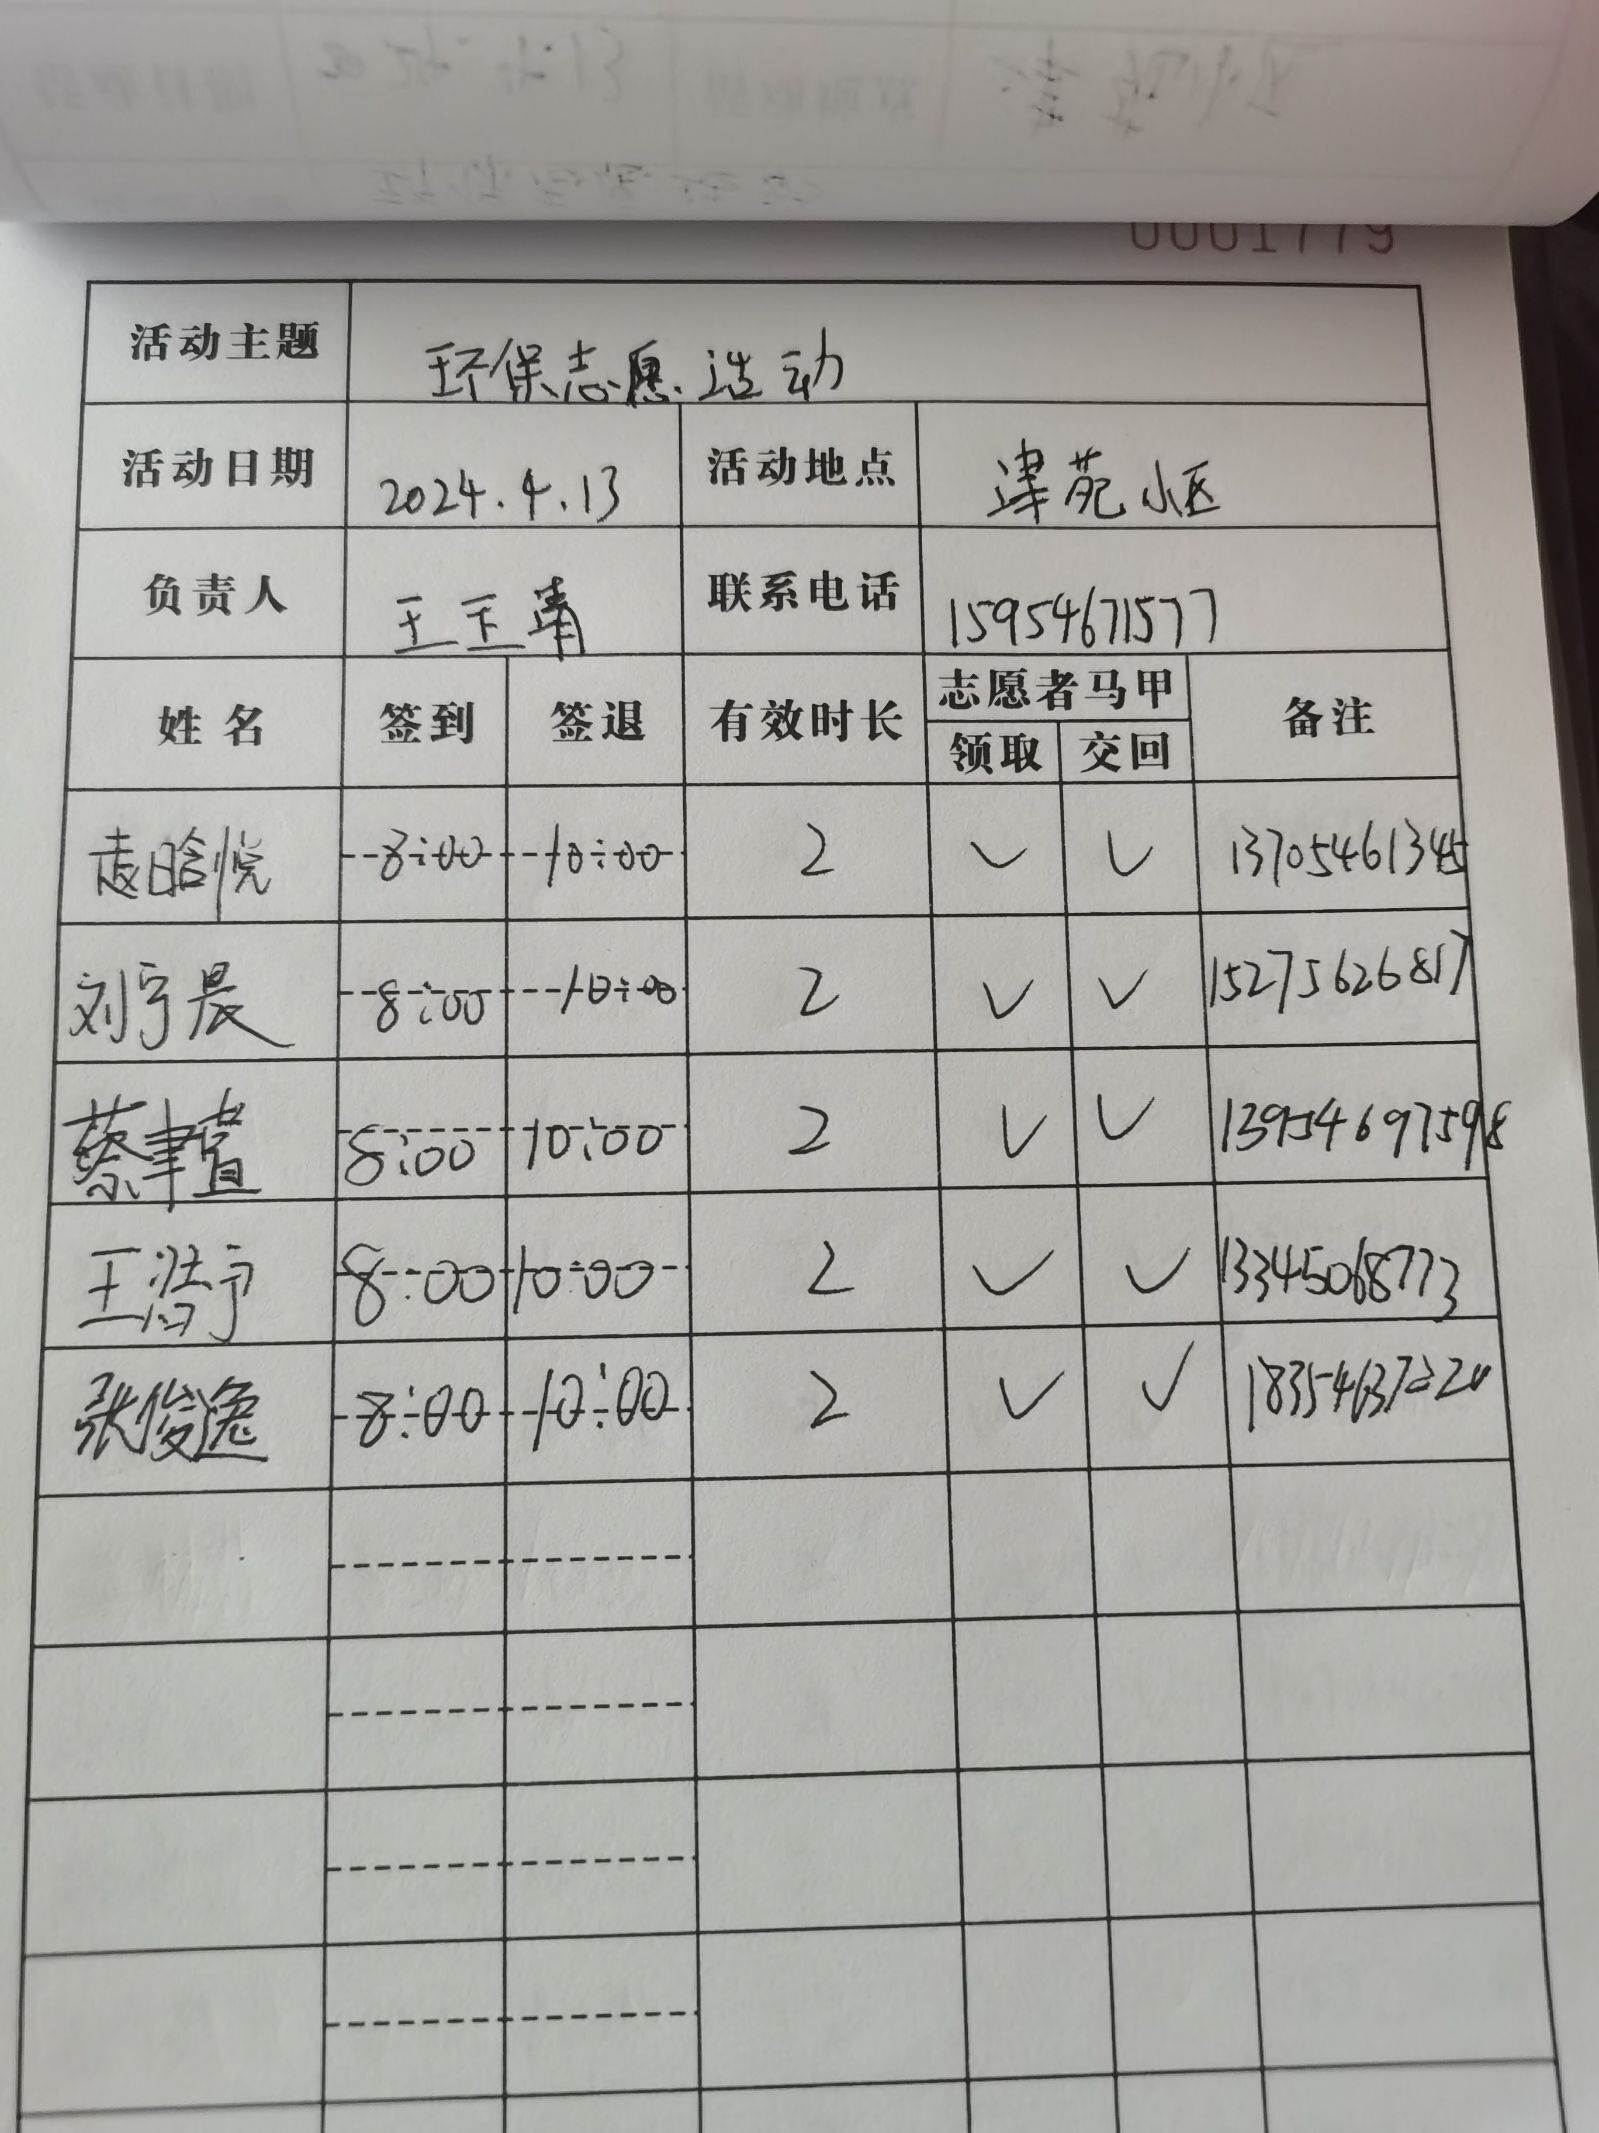 0001779
活动主题 环保志愿活动
活动日期 2024.4.13 活动地点 津苑小区
负责人 王玉清 联系电话 15954671577
姓名 签到 签退 有效时长 志愿者马甲 备注
领取 交回
8:00 10:00 2 ✓ ✓ 13705461345
刘宇晨 8:00 10:00 2 ✓ ✓ 15275626817
蔡聿萱 8:00 10:00 2 ✓ ✓ 13954697598
王浩宁 8:00 10:00 2 ✓ ✓ 13345068773
张俊逸 8:00 10:00 2 ✓ ✓